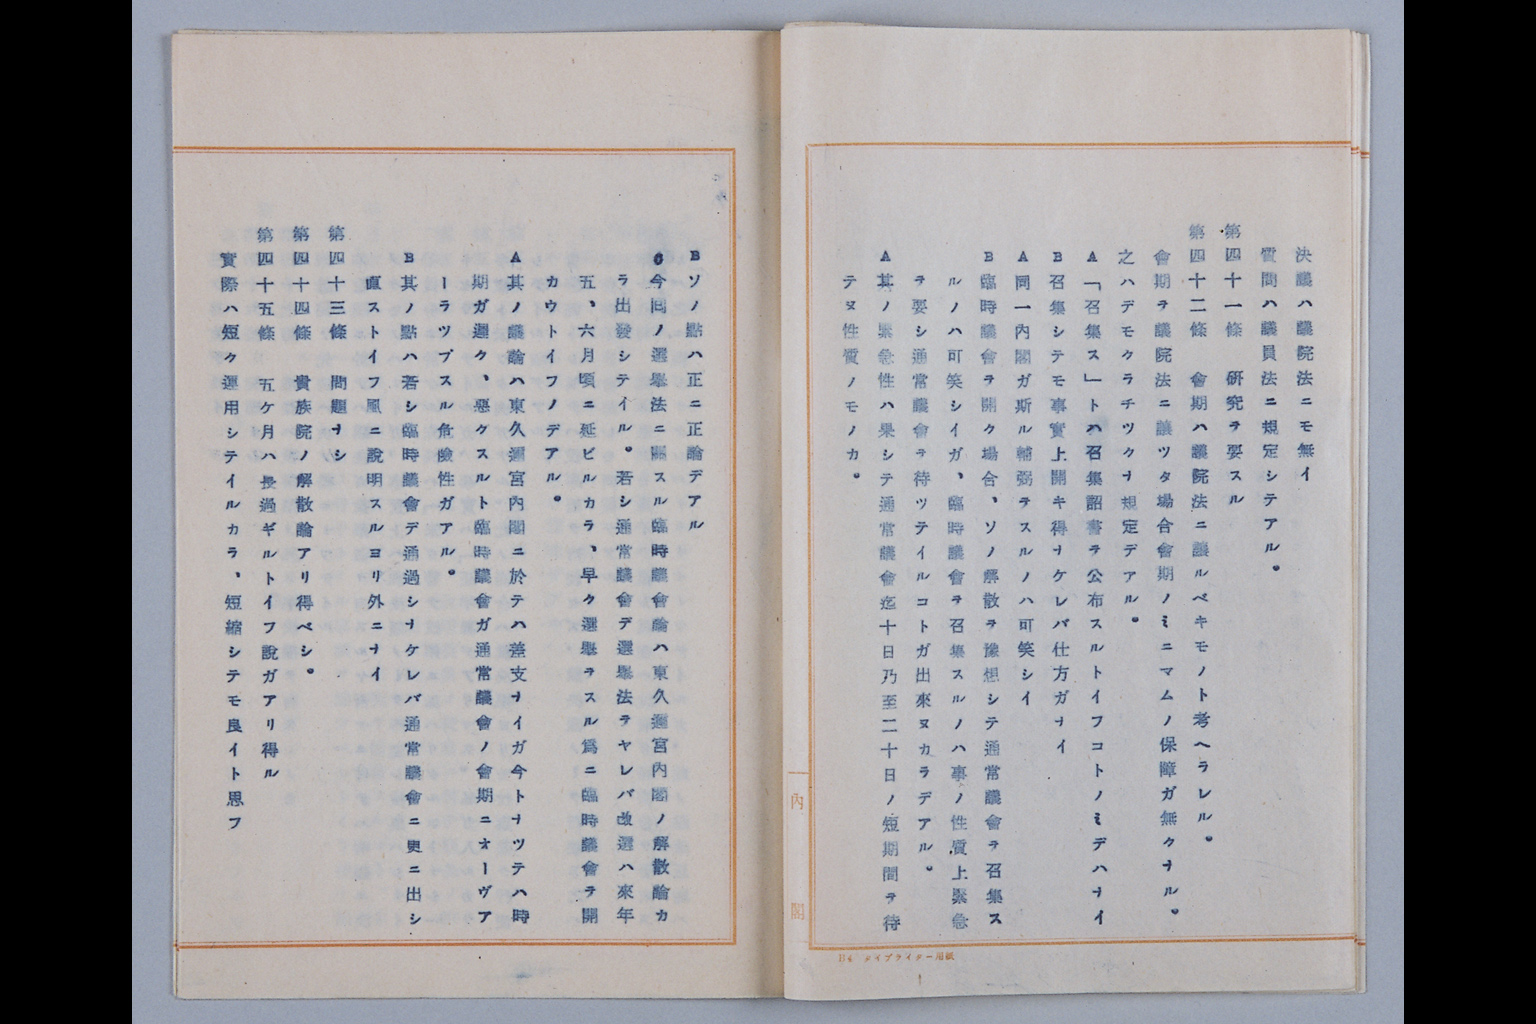 決議ハ議院法ニモ無イ
質問ハ議員法ニ規定シテアル。
第四十一條　研究ヲ要スル
第四十二條　會期ハ議院法ニ讓ルベキモノト考ヘラレル。
會期ヲ議院法ニ讓ツタ場合會期ノミニマムノ保障ガ無クナル。
之ハデモクラチツクナ規定デアル。
A「召集ス」トハ召集詔書ヲ公布スルトイフコトノミデハナイ
B召集シテモ事實上開キ得ナケレバ仕方ガナイ
A同一內閣ガ斯ル輔弼ヲスルノハ可笑シイ
B臨時議會ヲ開ク場合、ソノ解散ヲ豫想シテ通常議會ヲ召集ス
ルノハ可笑シイガ、臨時議會ヲ召集スルノハ事ノ性質上緊急
ヲ要シ通常議會ヲ待ツテイルコトガ出來ヌカラデアル。
A其ノ緊急性ハ果シテ通常議會迄十日乃至二十日ノ短期間ヲ待
テヌ性質ノモノカ。
內閣
B4 タイプライター用紙
Bソノ點ハ正ニ正論デアル
C今回ノ選擧法ニ關スル臨時議會論ハ東久邇宮內閣ノ解散論カ
ラ出發シテイル。若シ通常議會デ選擧法ヲヤレバ改選ハ來年
五、六月頃ニ延ビルカラ、早ク選擧ヲスル爲ニ臨時議會ヲ開
カウトイフノデアル。
A其ノ議論ハ東久邇宮內閣ニ於テハ差支ナイガ今トナツテハ時
期ガ遲ク、惡クスルト臨時議會ガ通常議會ノ會期ニオーヴア
ーラツプスル危險性ガアル。
B其ノ點ハ若シ臨時議會デ通過シナケレバ通常議會ニ更ニ出シ
直ストイフ風ニ說明スルヨリ外ニナイ
第四十三條　問題ナシ
第四十四條　貴族院ノ解散論アリ得ベシ。
第四十五條　五ケ月ハ長過ギルトイフ說ガアリ得ル
實際ハ短ク運用シテイルカラ、短縮シテモ良イト思フ